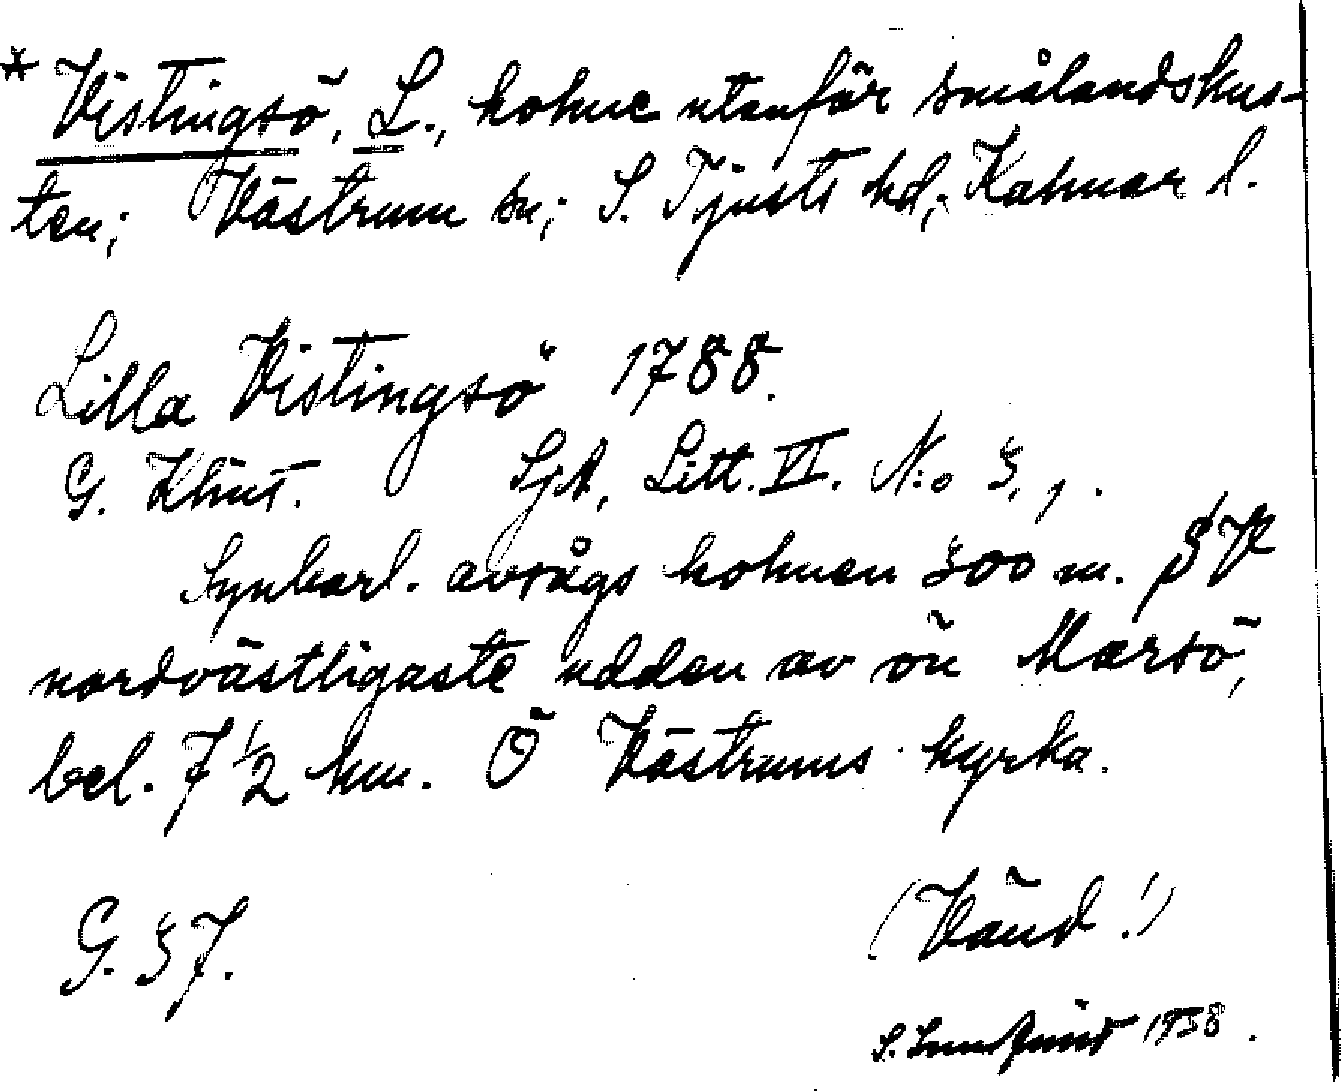 * Vistingsö, L., holme utanför smålandskus-
ten; Västrum sn; S. Tjusts hd; Kalmar l.
Lilla Vistingsö 1788.
G. Klint. SjA, Litt. VI. N:o 3, 1.
Synbarl. avsågs holmen 300 m. SV
nordvästligaste udden av ön Marsö,
bel. 7 1/2 km. Ö Västrums kyrka.
G. 37.
(Vänd!)
S. 1938.